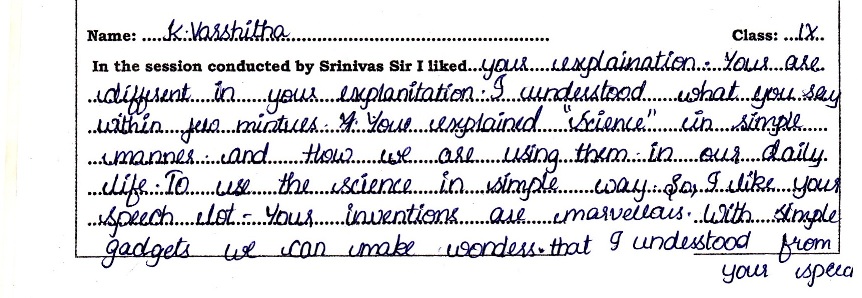 Name: ....K.Varshitha............ Class: ...IX..
In the session conducted by Srinivas Sir I liked...your explaination. Your are
different in your explanitation. I understood what you say
within few mintues. Your explained "Science" in simple
manner. and How we are using them in our daily
life. To use the science in simple way. So, I like your
speech alot - Your inventions are marvellous. With simple
gadgets we can make wonders. that I understood from
your speec